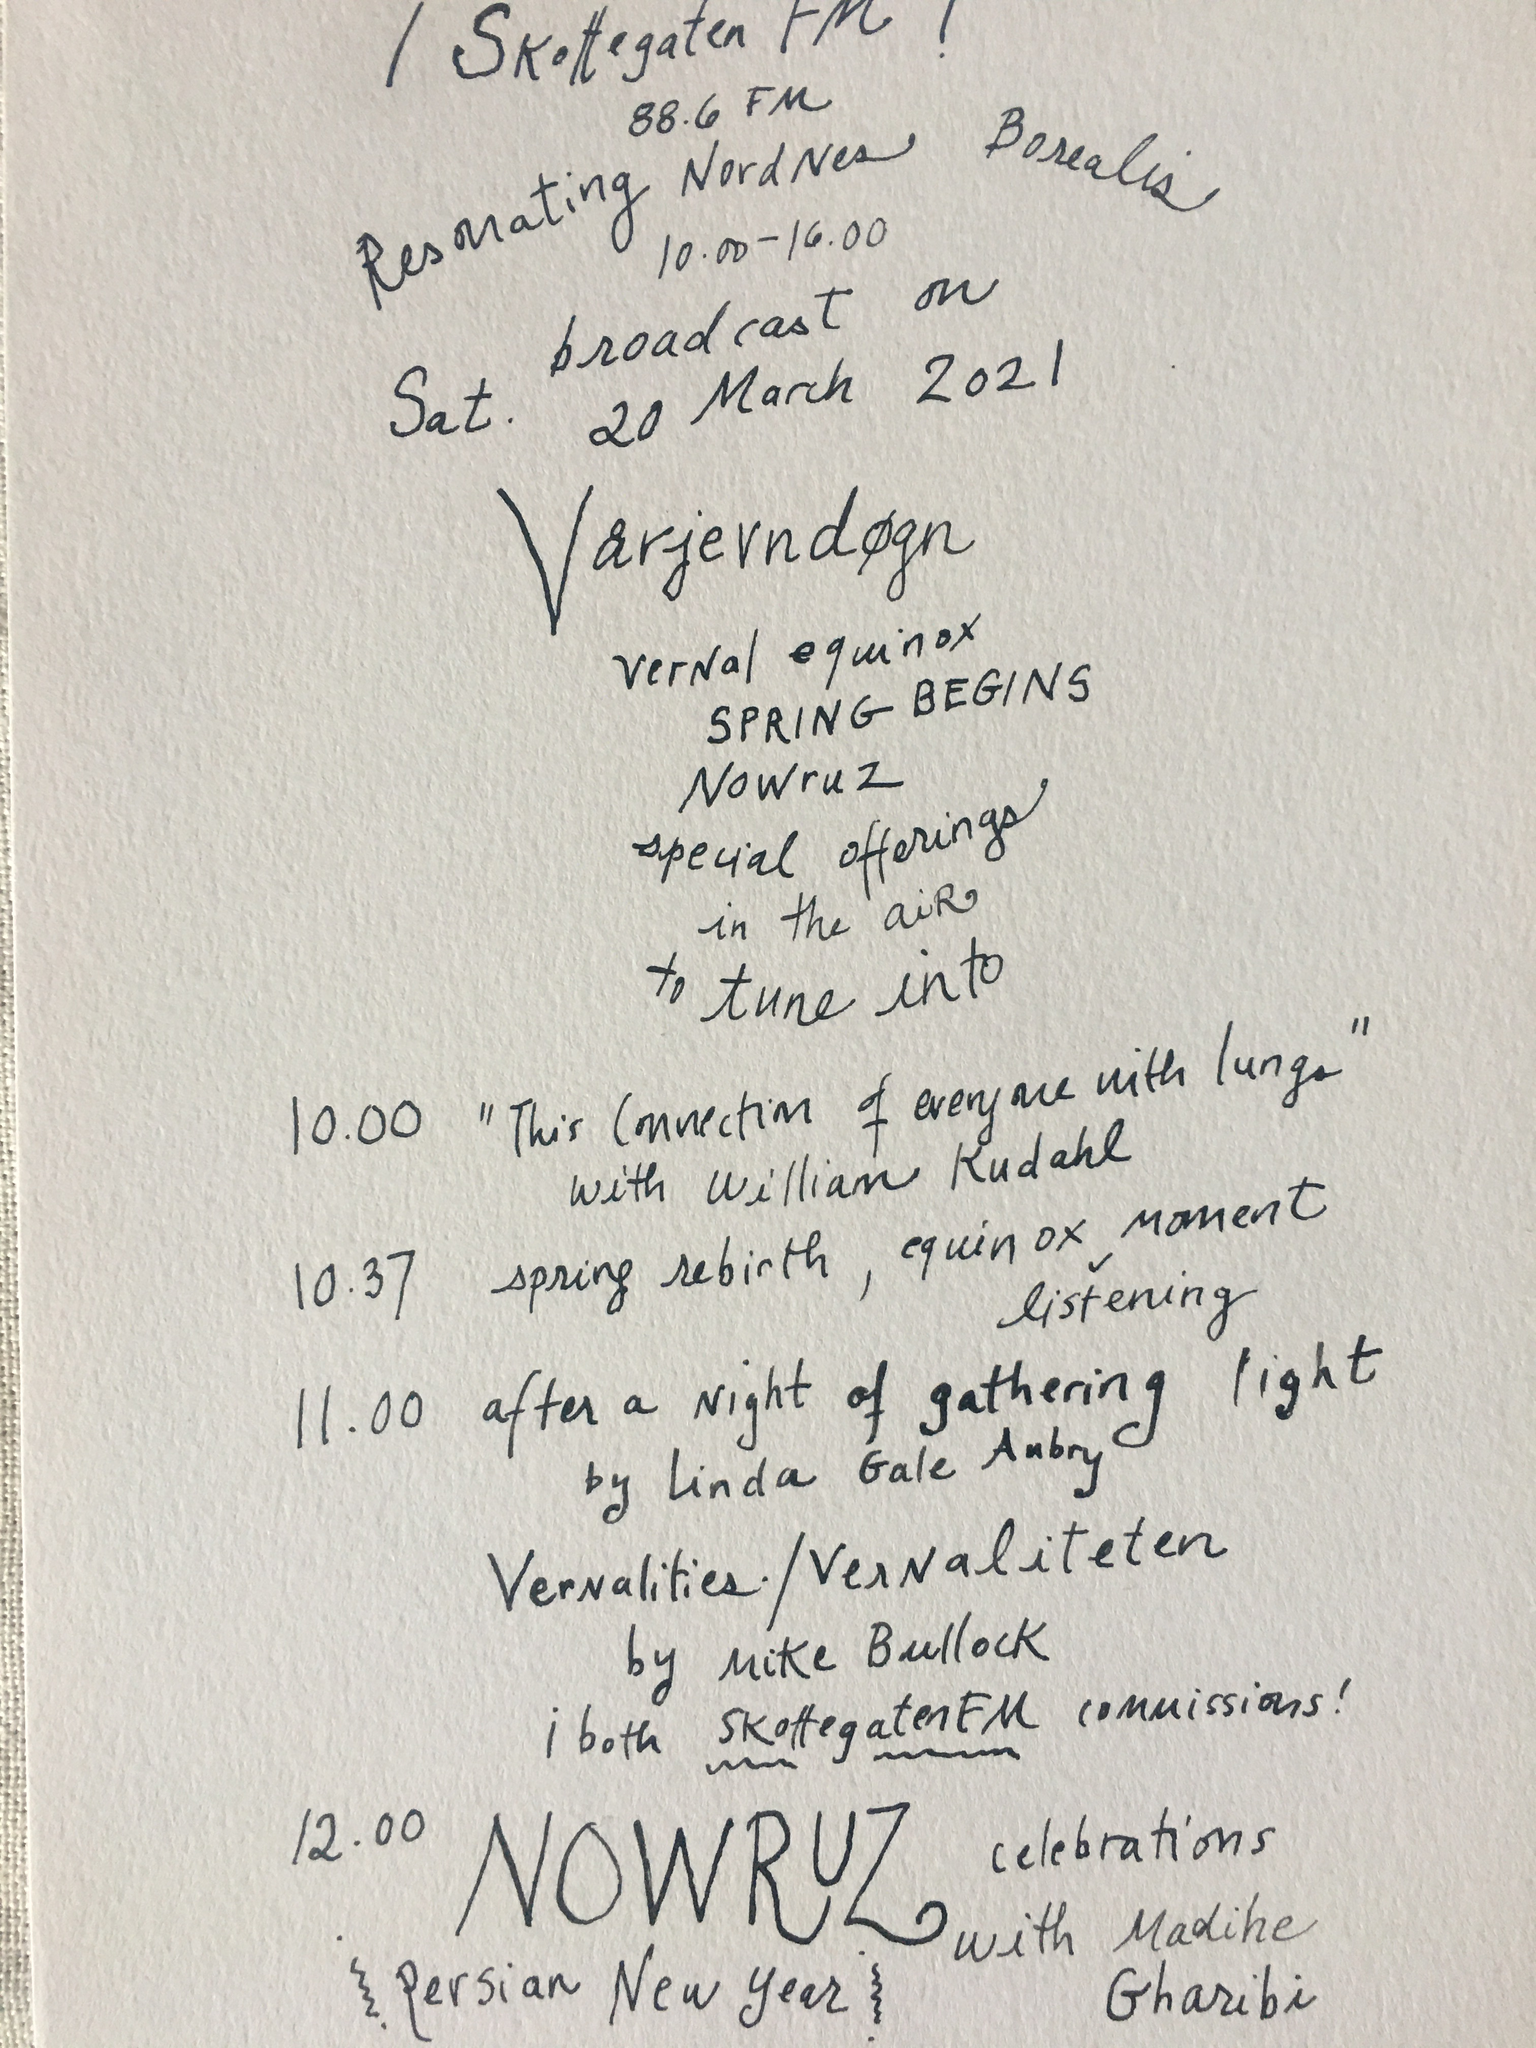 / Skottegaten FM !
88.6 FM
Resonating NordNes Borealis
10.00-16.00
broadcast on
Sat. 20 March 2021
Vårjevndøgn
vernal equinox
SPRING BEGINS
Nowruz
special offerings
in the aiR
to tune into
10.00 "This Connection of everyone with lungs"
with William Kudahl
10.37 spring rebirth, equinox moment
listening
11.00 after a Night of gathering light
by Linda Gale Aubry
Vernalities./Vernaliteten
by Mike Bullock
¡ both SkottegatenFM commissions!
12.00 NOWRUZ celebrations
with Madihe
{Persian New Year} Gharibi